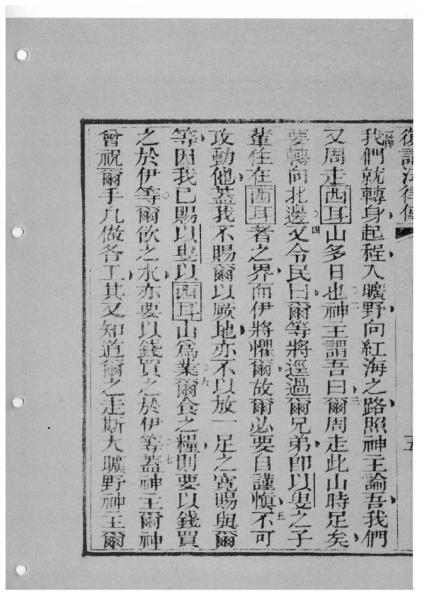 復講法律傳 五
我們就轉身起程入曠野向紅海之路照神主諭吾我們
又周走西耳山多日也二神主謂吾曰三爾周走此山時足矣
要轉向北邊四又令民曰爾等將逕過爾兄弟即以叟之子
輩住在西耳者之界而伊將懼爾故爾必要自謹慎五不可
攻動他蓋我不賜爾以厥地亦不以放一足之寬賜與爾
等因我已賜以叟以西耳山為業六爾食之糧則要以錢買
之於伊等爾飲之水亦要以錢買之於伊等七蓋神主爾神
曾祝爾手凡做各工其又知道爾之走斯大曠野神主爾